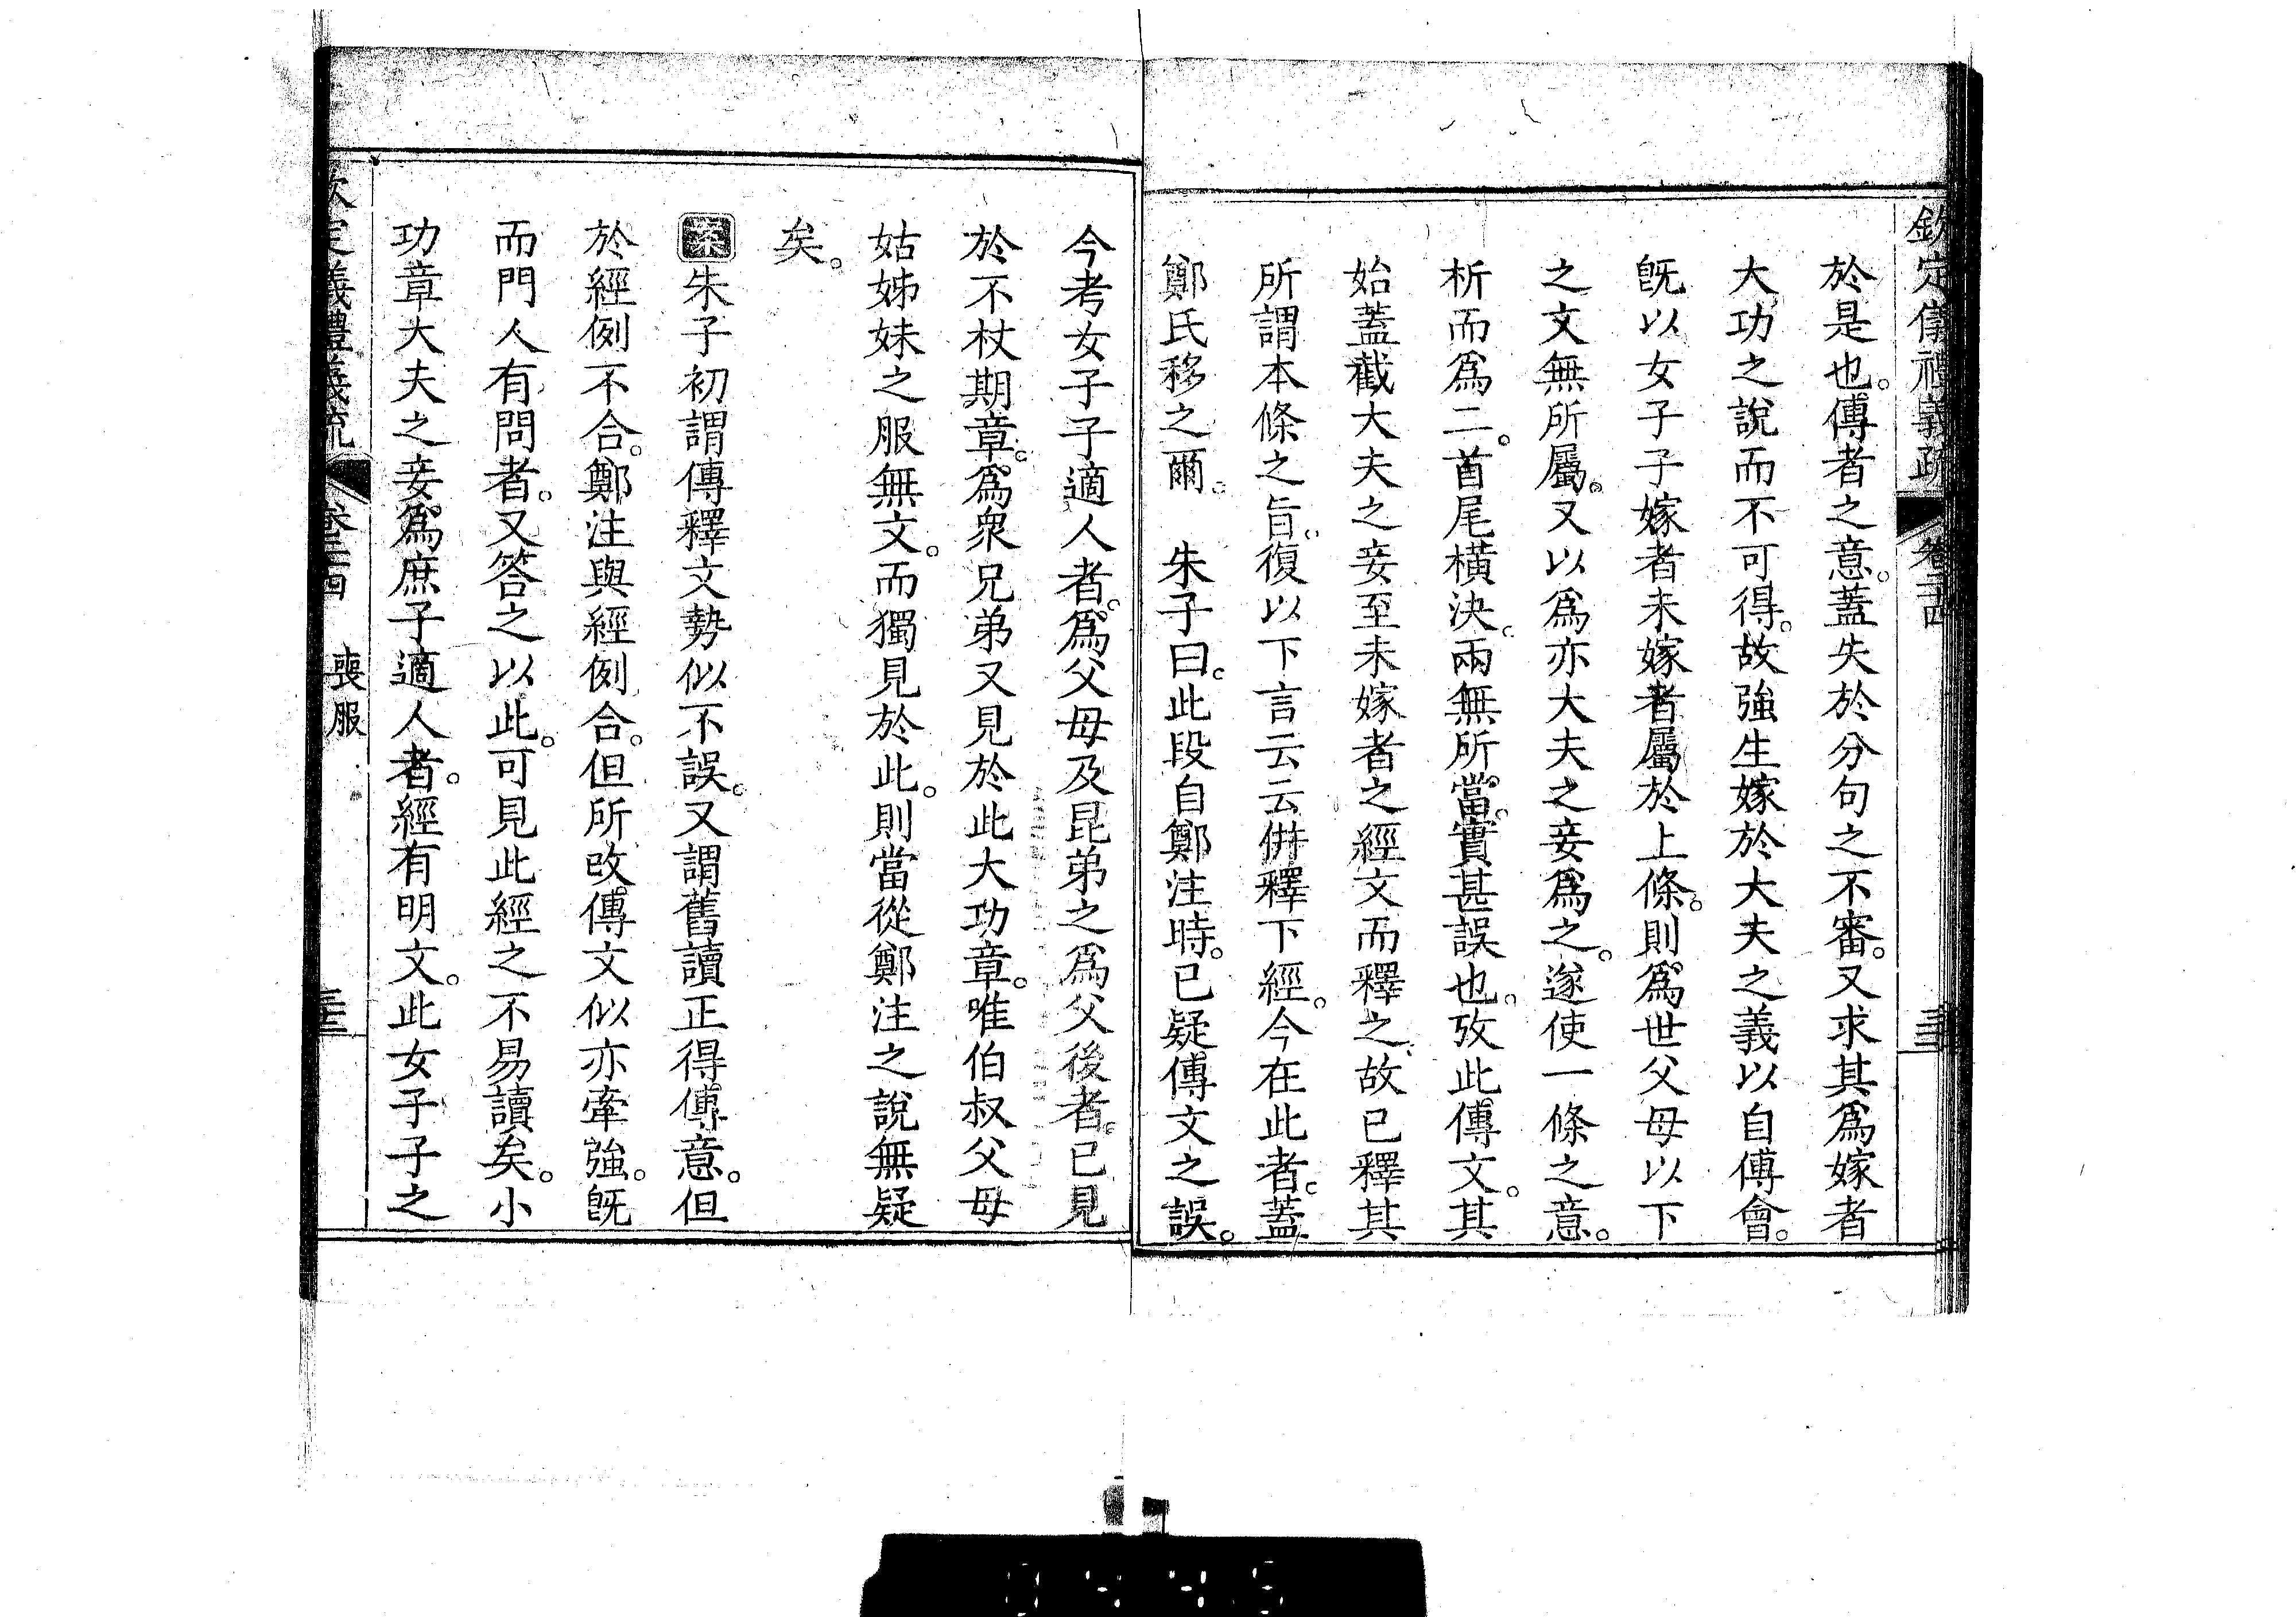 欽定儀禮義疏 卷二十四
於是也。傳者之意。蓋失於分句之不審。又求其爲嫁者
大功之說而不可得。故強生嫁於大夫之義以自傅會。
旣以女子子嫁者未嫁者屬於上條。則爲世父母以下
之文無所屬。又以爲亦大夫之妾爲之。遂使一條之意。
析而爲二。首尾橫決。兩無所當。實甚誤也。攷此傳文。其
始蓋截大夫之妾至未嫁者之經文而釋之。故已釋其
所謂本條之旨。復以下言云云併釋下經。今在此者。蓋
鄭氏移之爾。 朱子曰。此段自鄭注時。已疑傳文之誤。
今考女子子適人者。爲父母及昆弟之爲父後者。已見
於不杖期章。爲衆兄弟又見於此大功章。唯伯叔父母
姑姊妹之服無文。而獨見於此。則當從鄭注之說無疑
矣。
案朱子初謂傳釋文勢似不誤。又謂舊讀正得傳意。但
於經例不合。鄭注與經例合。但所改傳文似亦牽強。旣
而門人有問者。又答之以此。可見此經之不易讀矣。小
功章大夫之妾。爲庶子適人者。經有明文。此女子子之
欽定儀禮義疏 卷二十四 喪服